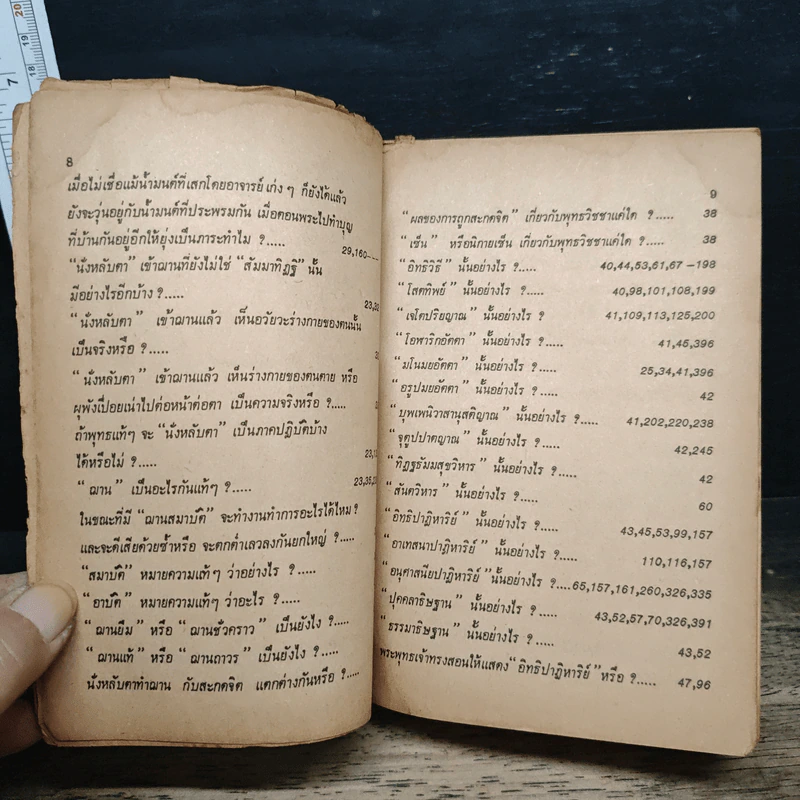 8
เมื่อไม่เชื่อแม้น้ำมนต์ที่เสกโดยอาจารย์เก่ง ๆ ก็ยังได้แล้ว
ยังจะวุ่นอยู่กับน้ำมนต์ที่ประพรมกัน เมื่อตอนพระไปทำบุญ
ที่บ้านกันอยู่อีกให้ยุ่งเป็นภาระทำไม ?..... 29,160-
“นั่งหลับตา” เข้าฌานที่ยังไม่ใช่ “สัมมาทิฏฐิ” นั้น
มีอย่างไรอีกบ้าง ?..... 23,
“นั่งหลับตา” เข้าฌานแล้ว เห็นอวัยวะร่างกายของตนนั้น
เป็นจริงหรือ ?.....
“นั่งหลับตา” เข้าฌานแล้ว เห็นร่างกายของตนตาย หรือ
ผุพังเปื่อยเน่าไปต่อหน้าต่อตา เป็นความจริงหรือ ?.....
ถ้าพุทธแท้ๆ จะ “นั่งหลับตา” เป็นภาคปฏิบัติบ้าง
ได้หรือไม่ ?..... 23,
“ฌาน” เป็นอะไรกันแท้ๆ ?..... 23,35,
ในขณะที่มี “ฌานสมาบัติ” จะทำงานทำการอะไรได้ไหม ?
และจะดีเสียด้วยซ้ำหรือ จะตกต่ำเลวลงกันยกใหญ่ ?.....
“สมาบัติ” หมายความแท้ๆ ว่าอย่างไร ?.....
“อาบัติ” หมายความแท้ๆ ว่าอะไร ?.....
“ฌานยืม” หรือ “ฌานชั่วคราว” เป็นยังไง ?.....
“ฌานแท้” หรือ “ฌานถาวร” เป็นยังไง ?.....
นั่งหลับตาทำฌาน กับสะกดจิต แตกต่างกันหรือ ?.....
9
“ผลของการถูกสะกดจิต” เกี่ยวกับพุทธวิชชาแค่ใด ?..... 38
“เซ็น” หรือนิกายเซ็น เกี่ยวกับพุทธวิชชาแค่ใด ?..... 38
“อิทธิวิธี” นั้นอย่างไร ?..... 40,44,53,61,67–198
“โสตทิพย์” นั้นอย่างไร ?..... 40,98,101,108,199
“เจโตปริยญาณ” นั้นอย่างไร ? 41,109,113,125,200
“โอฬาริกอัตตา” นั้นอย่างไร ?..... 41,45,396
“มโนมยอัตตา” นั้นอย่างไร ?..... 25,34,41,396
“อรูปมยอัตตา” นั้นอย่างไร ?..... 42
“บุพเพนิวาสานุสติญาณ” นั้นอย่างไร ?..... 41,202,220,238
“จุตูปปาตญาณ” นั้นอย่างไร ?..... 42,245
“ทิฏฐธัมมสุขวิหาร” นั้นอย่างไร ?..... 42
“สันตวิหาร” นั้นอย่างไร ?..... 60
“อิทธิปาฏิหาริย์” นั้นอย่างไร ?..... 43,45,53,99,157
“อาเทสนาปาฏิหาริย์” นั้นอย่างไร ?..... 110,116,157
“อนุศาสนียปาฏิหาริย์” นั้นอย่างไร ?....65,157,161,260,326,335
“ปุคคลาธิษฐาน” นั้นอย่างไร ?..... 43,52,57,70,326,391
“ธรรมาธิษฐาน” นั้นอย่างไร ?..... 43,52
พระพุทธเจ้าทรงสอนให้แสดง “อิทธิปาฏิหาริย์” หรือ ?..... 47,96